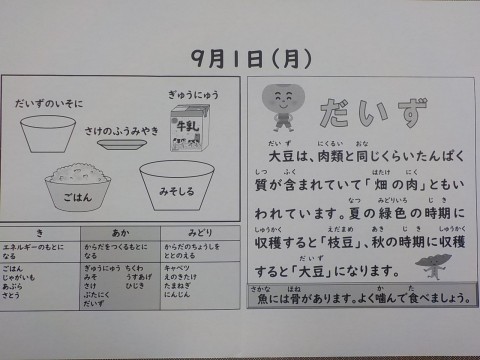 9月1日(月)
だいずのいそに
ぎゅうにゅう
牛乳
さけのふうみやき
ごはん
みそしる
き
あか
みどり
エネルギーのもとになる
からだをつくるもとになる
からだのちょうしをととのえる
ごはん
じゃがいも
あぶら
さとう
ぎゅうにゅう ちくわ
みそ うすあげ
さけ ひじき
ぶたにく
だいず
キャベツ
えのきたけ
たまねぎ
にんじん
だいず
だいず にくるい おな
大豆は、肉類と同じくらいたんぱく
しつ ふく はたけ にく
質が含まれていて「畑の肉」ともい
なつ みどりいろ じき
われています。夏の緑色の時期に
しゅうかく えだまめ あき じき しゅうかく
収穫すると「枝豆」、秋の時期に収穫
だいず
すると「大豆」になります。
さかな ほね か た
魚には骨があります。よく噛んで食べましょう。